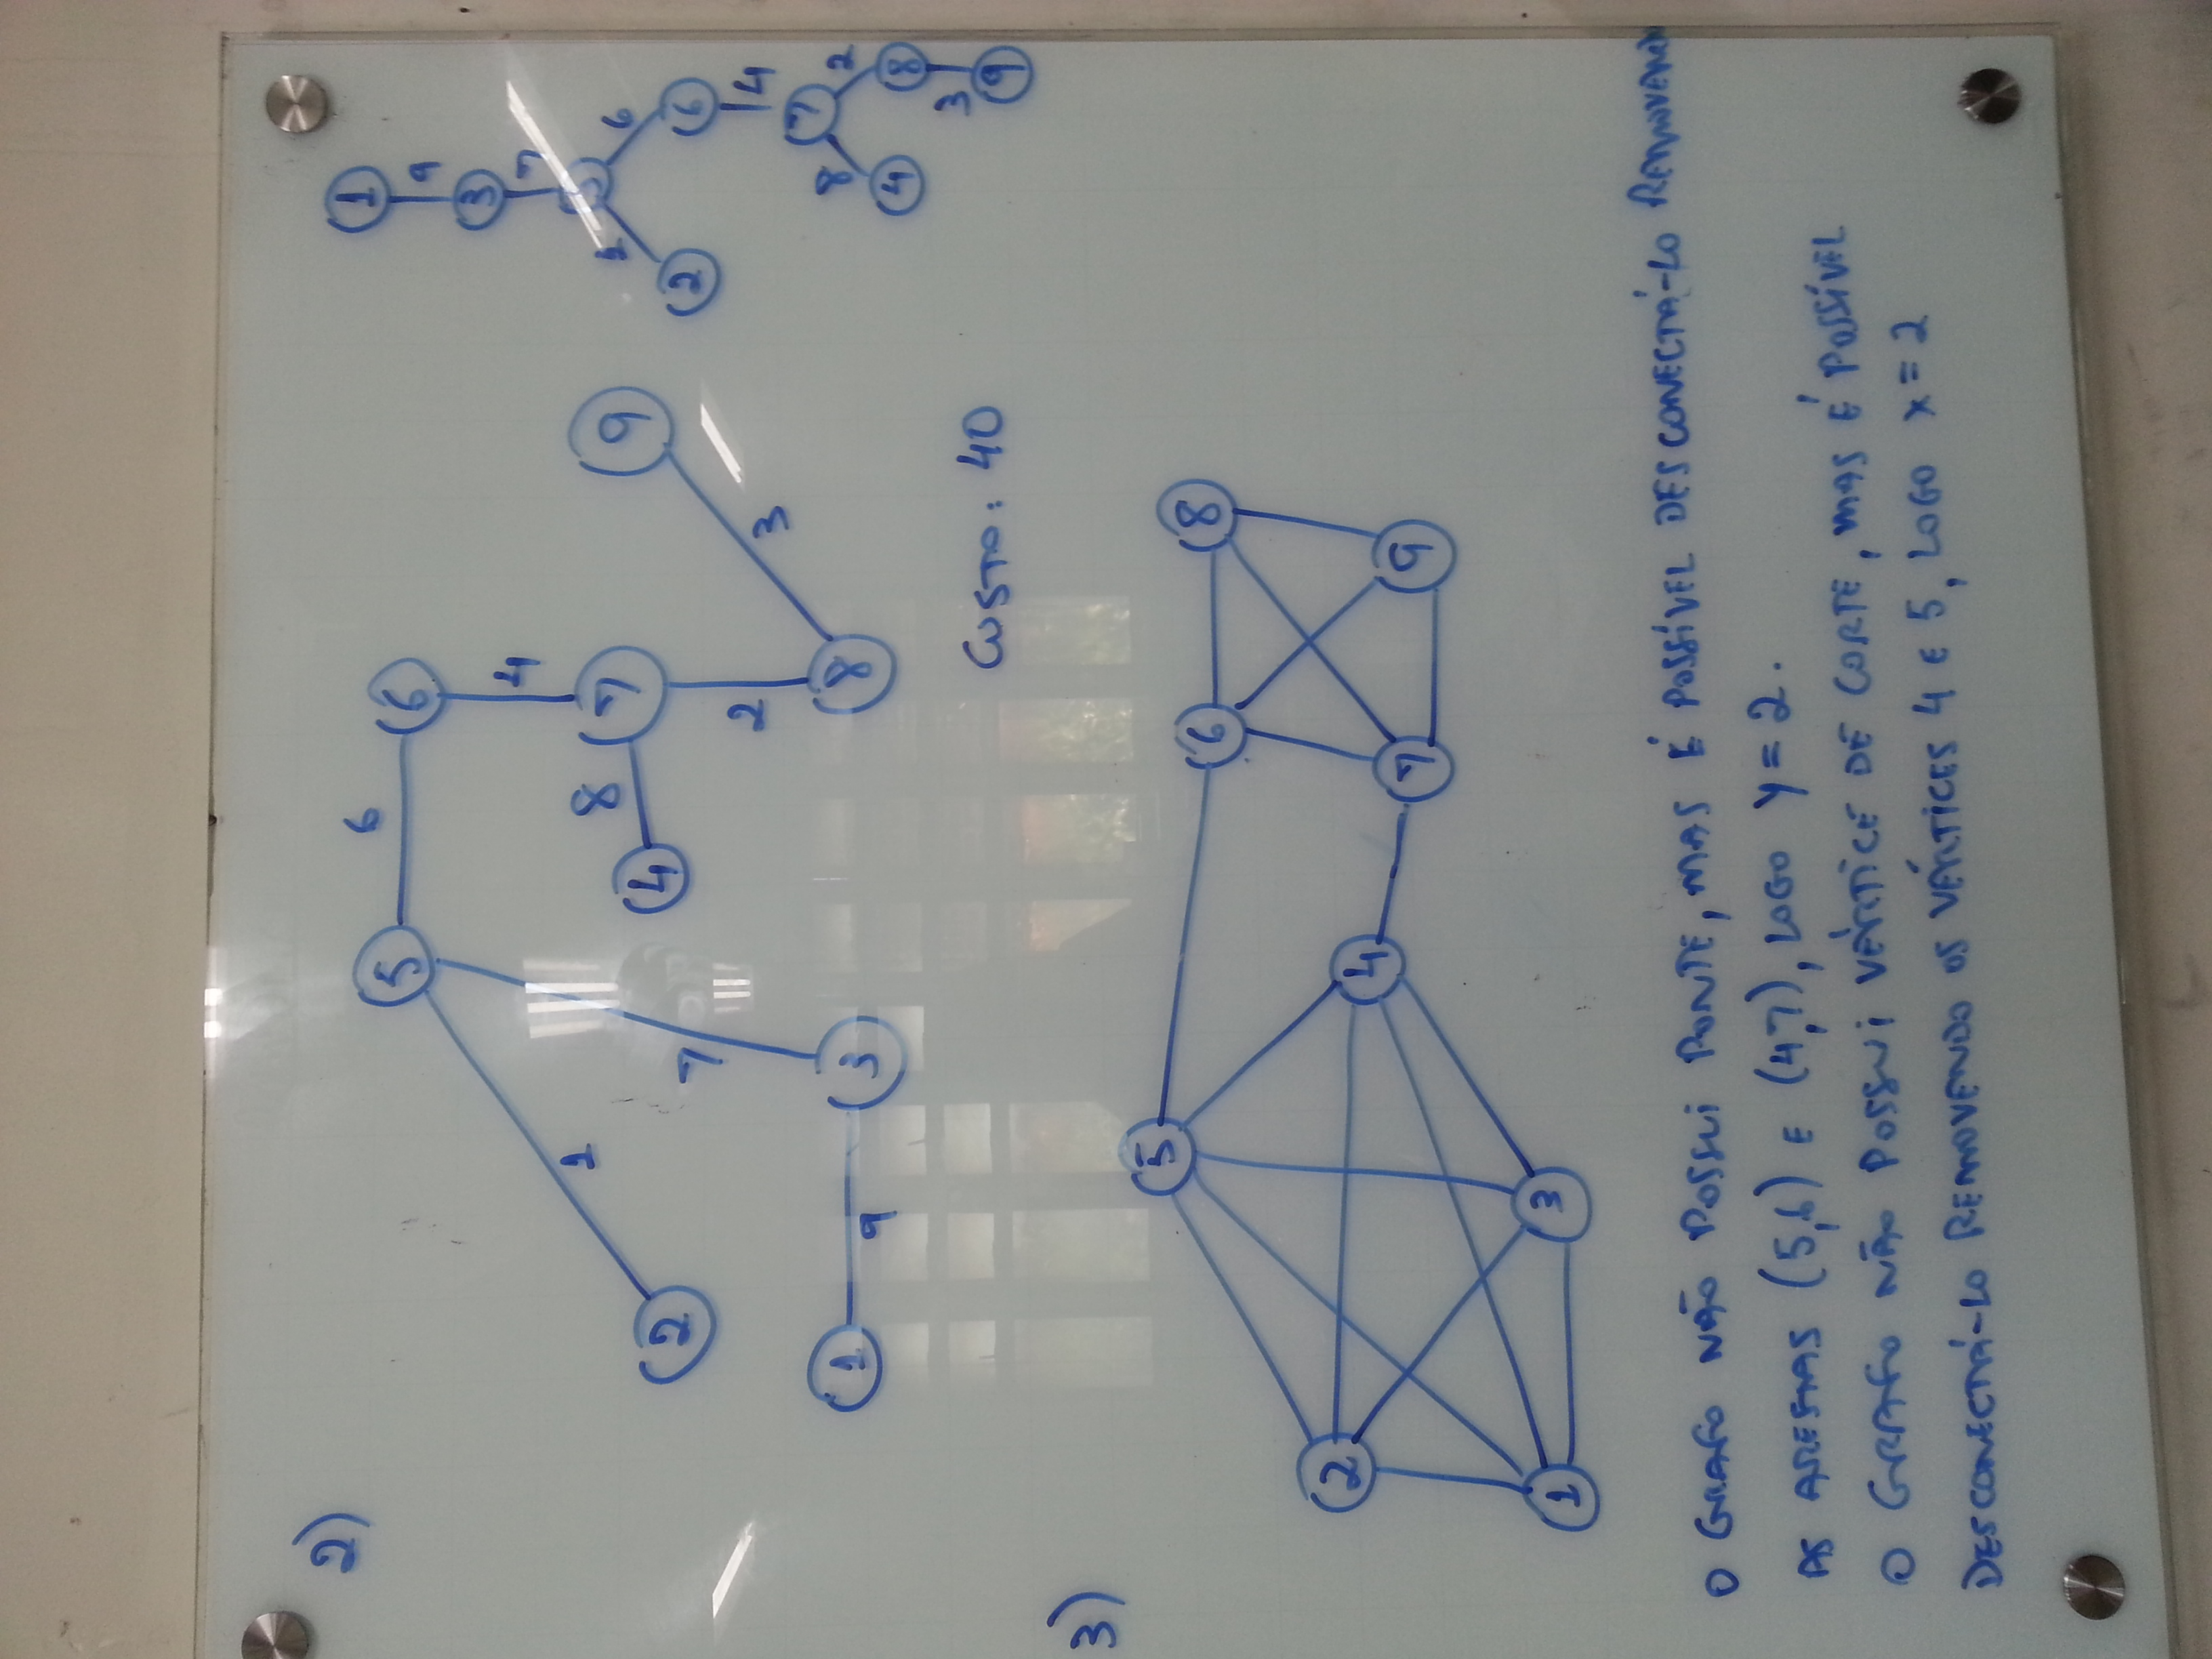 2)
5 6 6
1 7 4
2 4 8 7 9
2 3
1 9 3 8
1
9
3
7
5
1 6
2 6
4
7
8 2
4 8
3
9
CUSTO: 40
3)
5 6 8
2 4 7 9
1 3
O GRAFO NÃO POSSUI PONTE, MAS É POSSÍVEL DESCONECTÁ-LO REMOVENDO
AS ARESTAS (5,6) E (4,7), LOGO y = 2.
O GRAFO NÃO POSSUI VÉRTICE DE CORTE, MAS É POSSÍVEL
DESCONECTÁ-LO REMOVENDO OS VÉRTICES 4 E 5, LOGO x = 2